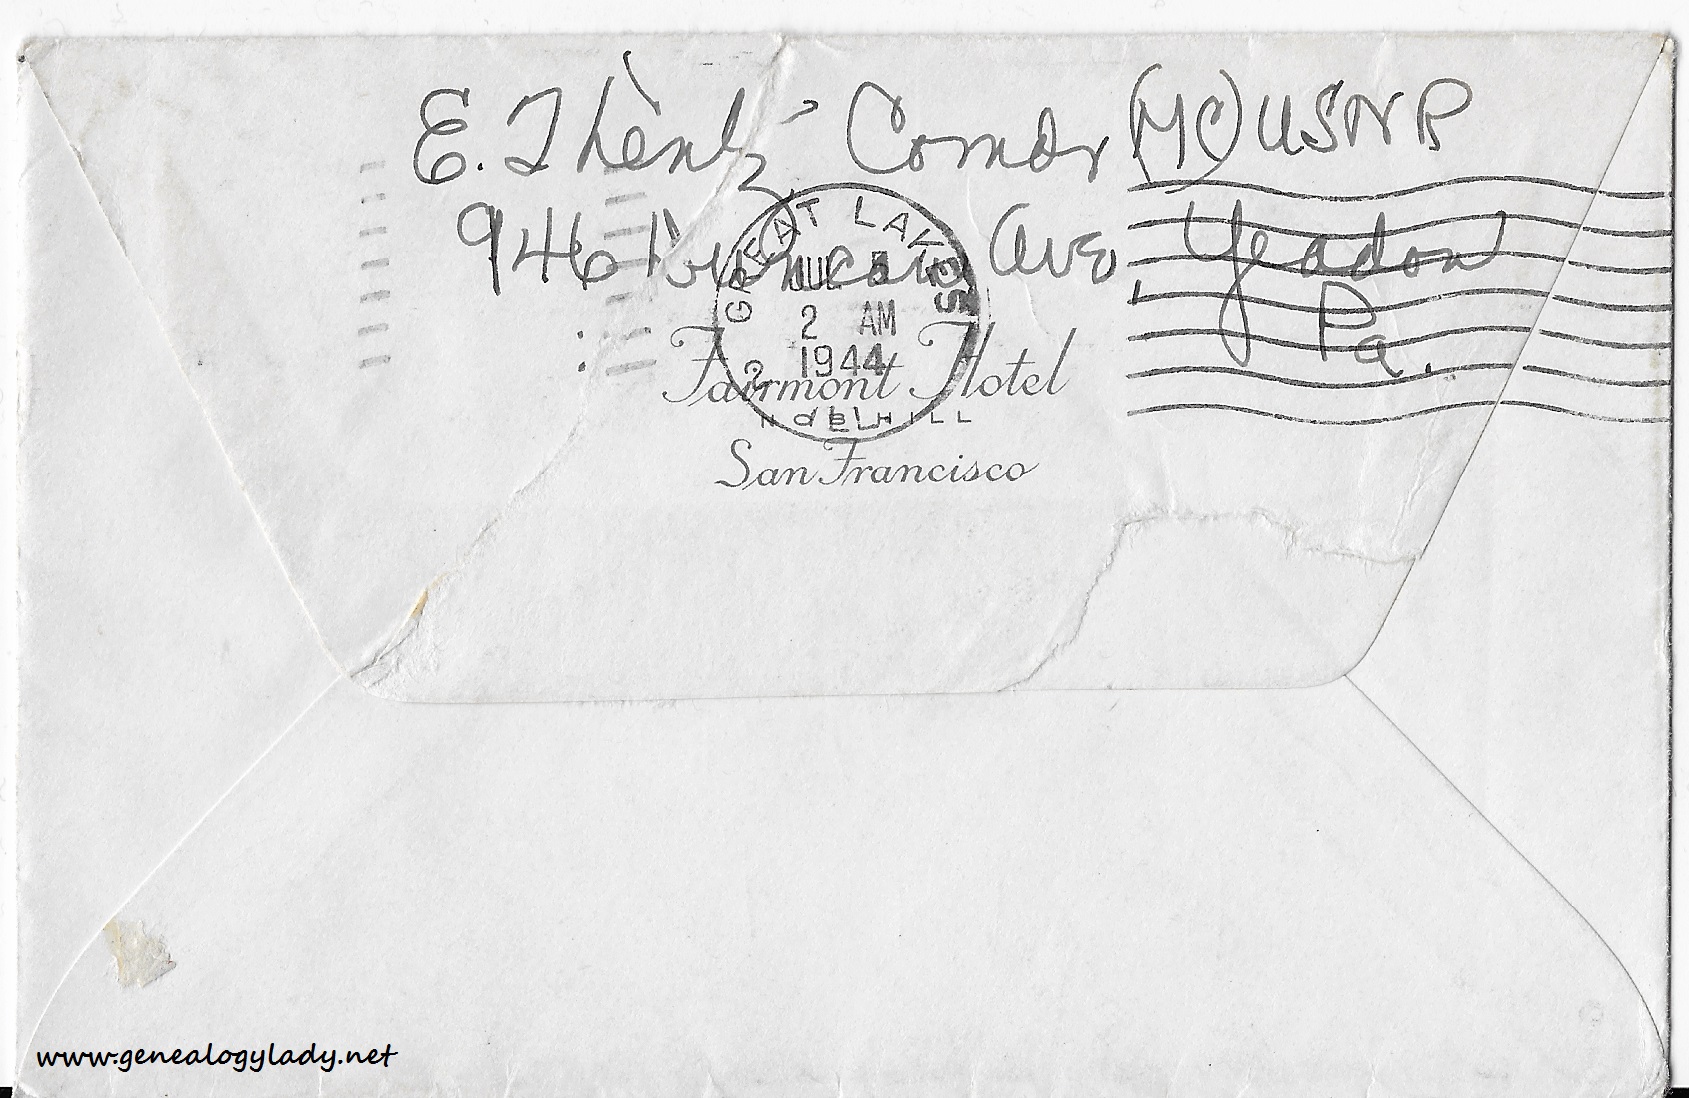 E. Thenbz Comdr (MC) USNR
946 Duncan Ave, Yeadon
Pa.
GREAT LAKES
JUL 3
2 AM
1944
2
ILL.
Fairmont Hotel
NOB HILL
San Francisco
www.genealogylady.net